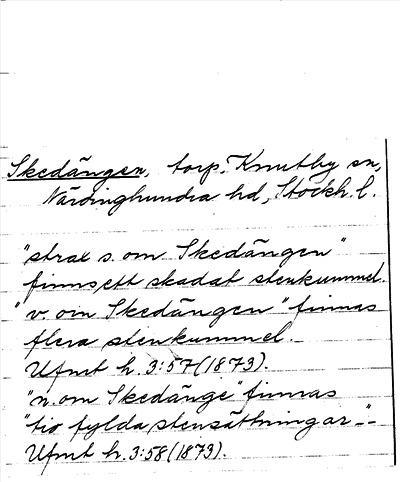 Skedängen, torp, Knutby sn,
Närdinghundra hd, Stockh. l.
"strax s. om Skedängen"
finns ett skadat stenkummel.
"v. om Skedängen" finnas
flera stenkummel.
Ufmt h. 3:57 (1873).
"n. om Skedänge" finnas
"tio fylda stensättningar -"-
Ufmt h. 3:58 (1873).